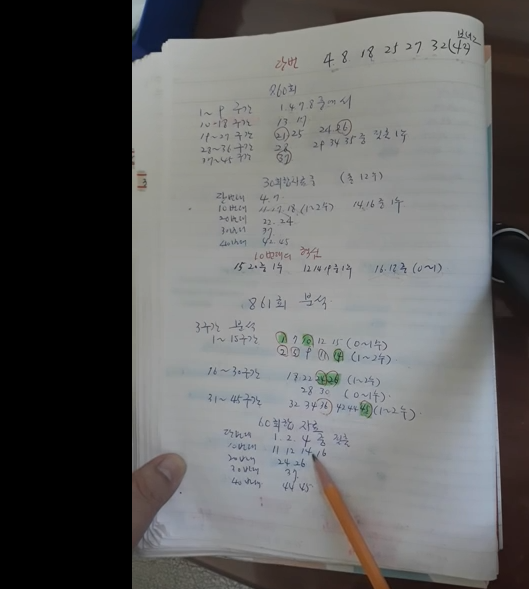 보너스
당번 4 8 18 25 27 32 (42)
860회
1~9 구간 1.4.7.8 중에서
10~18 구간 13 17
19~27 구간 21 25 24 26
28~36 구간 28 29 34 35 중 필출 1수
37~45 구간 37
30회합자료 (총 12수)
단번대 4.7
10번대 11.17.18 (1~2수) 14.16 중 1수
20번대 22.24
30번대 37
40번대 42.45
10번대의 핵심
15.20 중 1수 12 14 19 중 1수 16.18 중 (0~1)
861회 분석
3구간 분석
1~15구간 1 7 10 12 15 (0~1수)
2 5 9 11 14 (1~2수)
16~30구간 19.22 25 26 (1~2수)
28 30 (0~1수)
31~45구간 32 34 36 42 44 45 (1~2수)
60회합 자료
단번대 1. 2. 4 중 필출
10번대 11 12 14 16
20번대 24 26
30번대 37
40번대 44 45